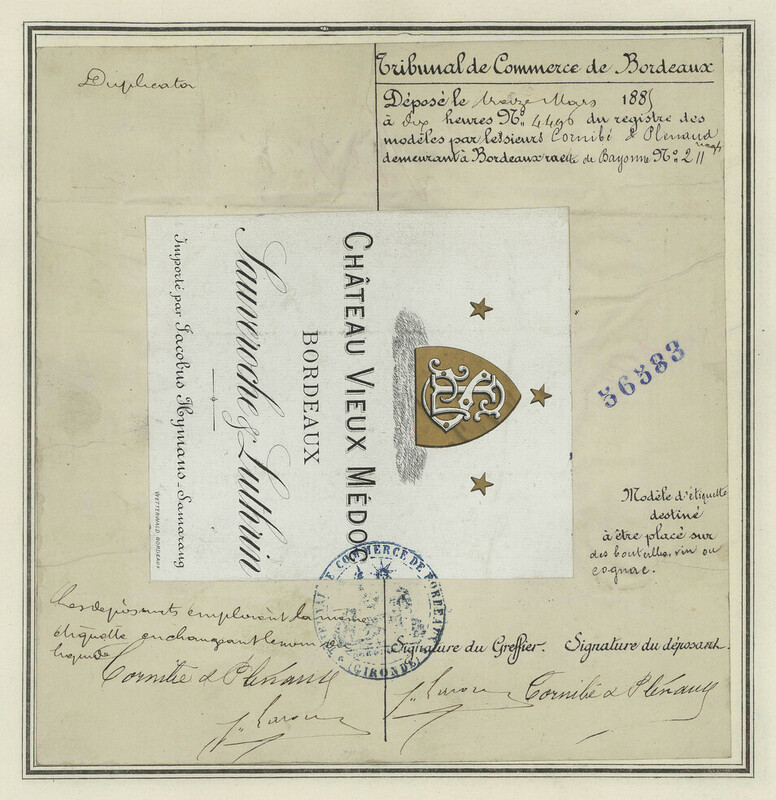 Duplicata
Tribunal de Commerce de Bordeaux
Déposé le treize Mars 1885
à dix heures No. 4496 du registre des
modèles par les sieurs Cornibé & Plénaud
demeurant à Bordeaux rue de Bayonne No. 2
CHÂTEAU VIEUX MÉDOC
BORDEAUX
Sauveroche & Luthrin
Importé par Jacobus Hymans-Samarang
WETTERWALD, BORDEAUX
56583
Modèle d'étiquette
destiné
à être placé sur
des bouteilles, vin ou
cognac.
COMMERCE DE BORDEAUX
(GIRONDE)
Les déposants emploieront la même
étiquette en changeant le nom
Cornibé & Plénaud
Signature du Greffier. Signature du déposant.
Cornibé & Plénaud